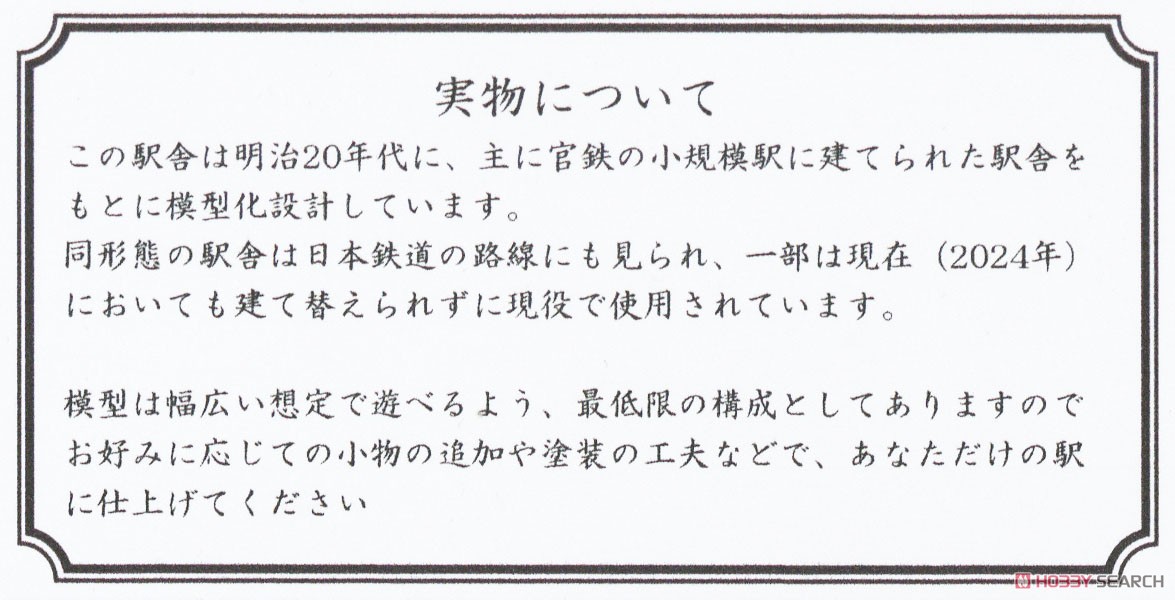 実物について
この駅舎は明治20年代に、主に官鉄の小規模駅に建てられた駅舎を
もとに模型化設計しています。
同形態の駅舎は日本鉄道の路線にも見られ、一部は現在（2024年）
においても建て替えられずに現役で使用されています。
模型は幅広い想定で遊べるよう、最低限の構成としてありますので
お好みに応じての小物の追加や塗装の工夫などで、あなただけの駅
に仕上げてください
HOBBY SEARCH